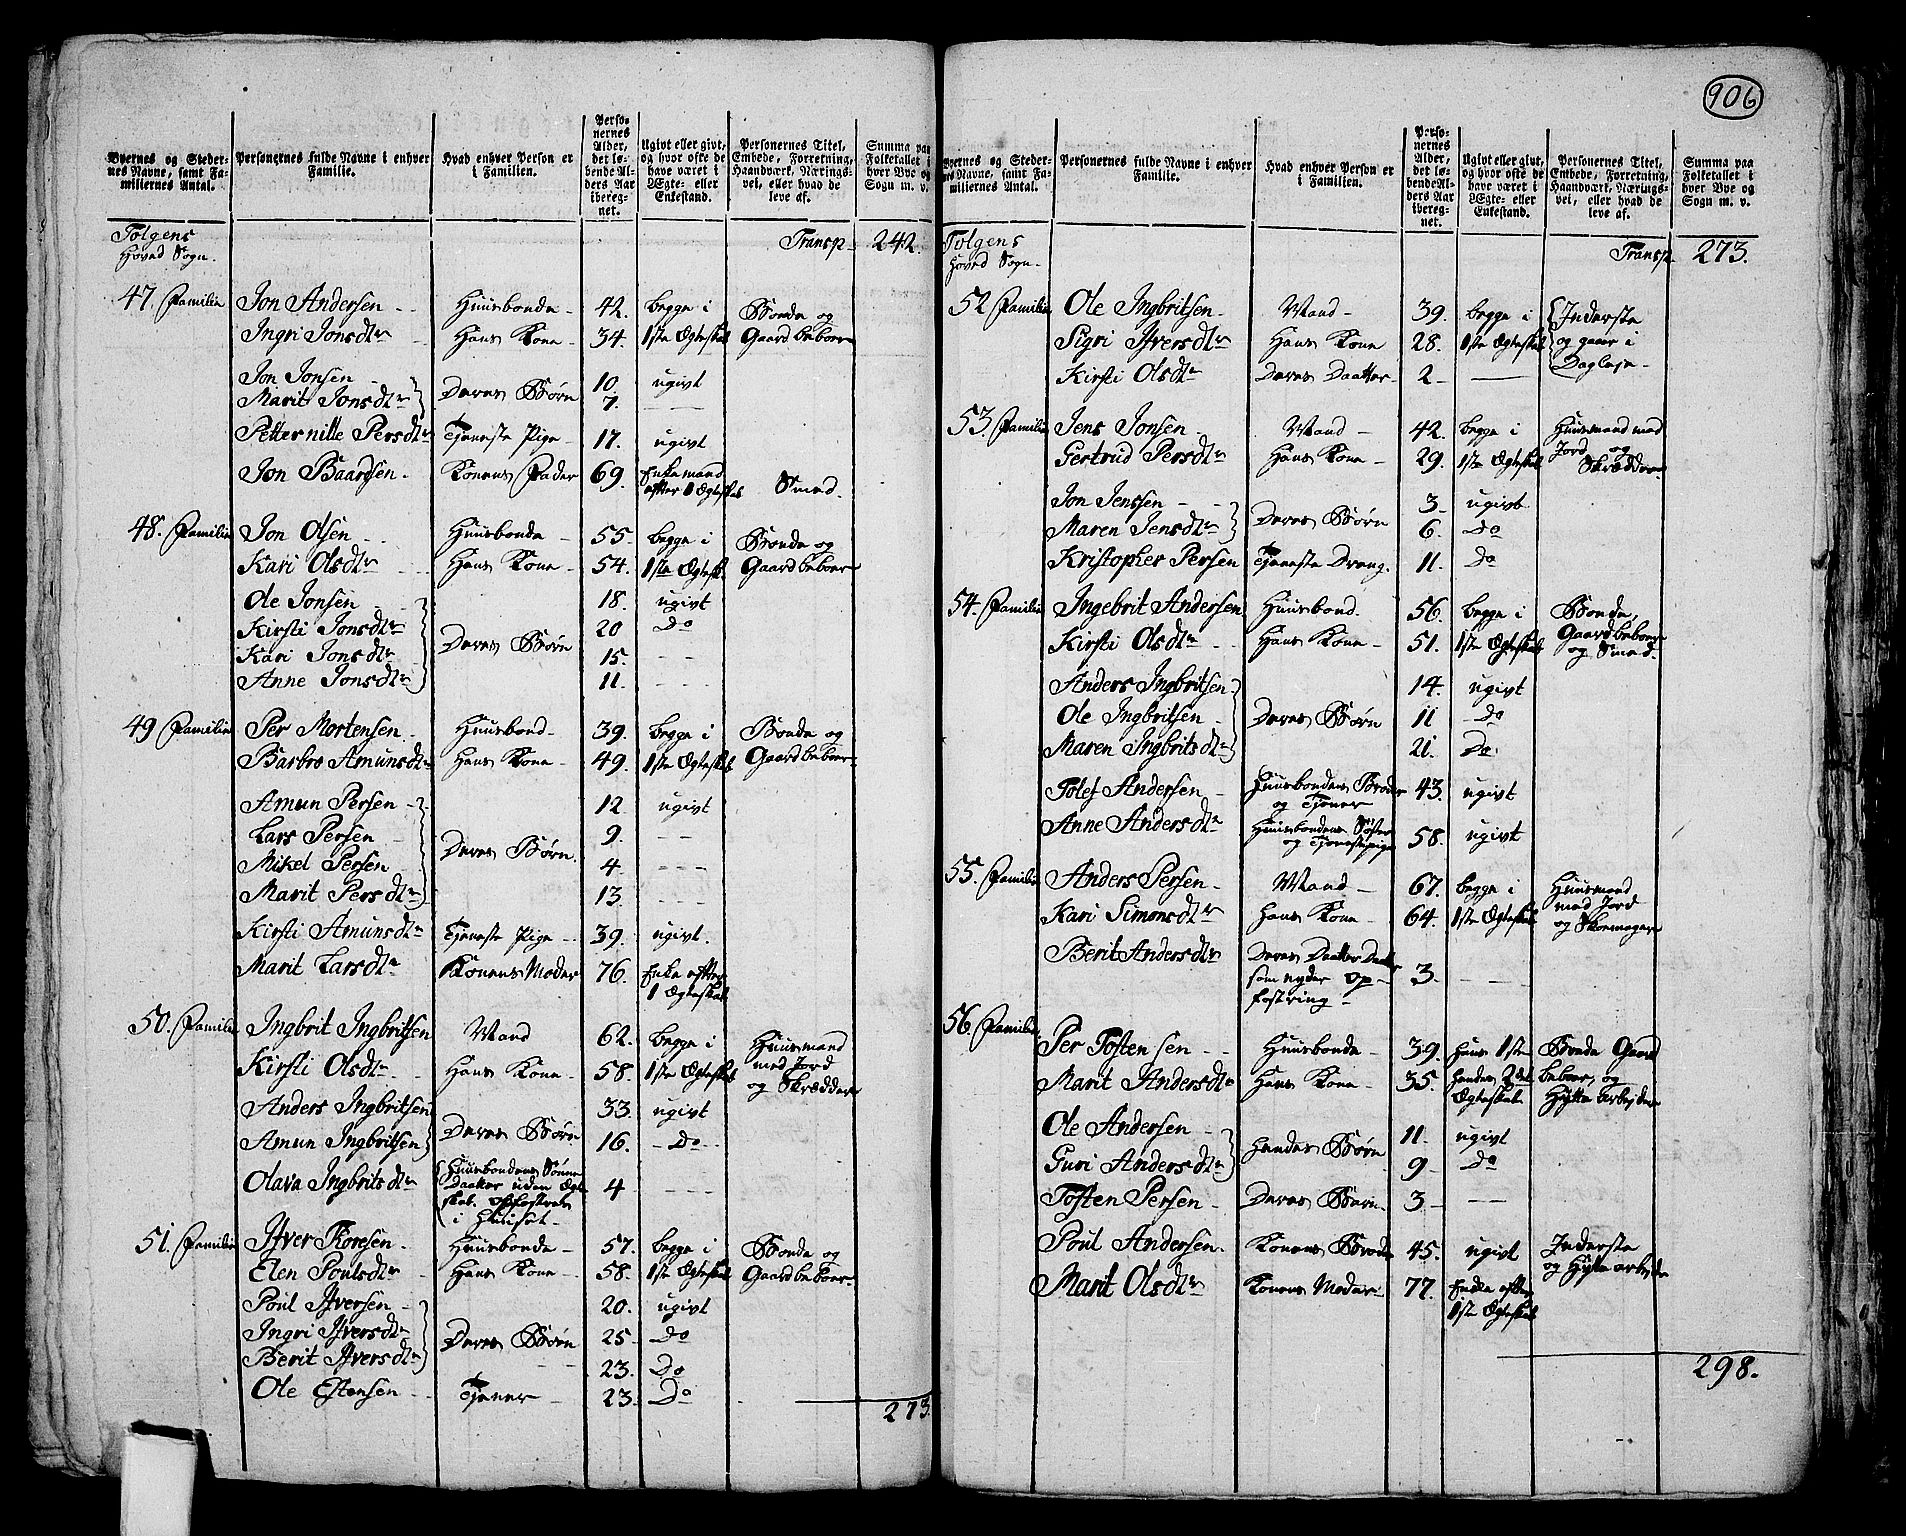 906
Byernes og Stedernes Navne, samt Familiernes Antal.
Personernes fulde Navne i enhver Familie.
Hvad enhver Person er i Familien.
Personernes Alder, det løbende Alders Aar iberegnet.
Ugivt eller givt, og hvor ofte de have været i Ægte- eller Enkestand.
Personernes Titel, Embede, Forretning, Haandværk, Næringsvei, eller hvad de leve af.
Summa paa Folketallet i hver Bye og Sogn m. v.
Tolgens Transp. 242.
Hoved Sogn.
47. Familie Jon Andersen Huusbonde 42. begge i Bonde og
Ingri Jonsdtr Hans Kone 34. 1ste Ægteskab Gaardbeboer
Jon Jonsen Deres Børn 10. ugivt
Marit Jonsdtr 7. — —
Petternille Persdtr Tjeneste Pige 17. ugivt
Jon Baardsen Konens Fader 69. Enkemand
efter 1 Ægteskab Smed.
48. Familie Jon Olsen Huusbonde 55. begge i Bonde og
Kari Olsdtr Hans Kone 54. 1ste Ægtesk. Gaardbeboer
Ole Jonsen 18. ugivt
Kirsti Jonsdtr Deres Børn 20 Do
Kari Jonsdtr 15. — —
Anne Jonsdtr 11. — — —
49 Familie Per Mortensen Huusbond 39. begge i Bonde og
Barbro Amunsdtr Hans Kone 49. 1ste Ægteskab Gaardbeboer
Amun Persen 12 ugivt
Lars Persen 9. — —
Mikel Persen Deres Børn. 4. — — —
Marit Persdtr 13 — — —
Kirsti Amunsdtr Tjeneste Pige 39. ugivt.
Marit Larsdtr Konens Moder 76. Enke efter
1 Ægteskab
50. Familie Ingbrit Ingbritsen Mand 62. begge i Huusmand
Kirsti Olsdtr Hans Kone 58. 1ste Ægteskab med Jord
og Skrædder
Anders Ingbritsen 33. ugivt
Amun Ingbritsen Deres Børn 16. Do
Olava Ingbritsdtr Huusbondens Sønne Daatter uden Ægteskab. opfostret i Huuset 4 — — —
51. Familie Ifver Toresen Huusbonde 57. begge i Bonde og
Elen Poulsdtr Hans Kone 58. 1ste Ægteskab Gaardbeboer
Poul Ifversen 20. ugivt
Ingri Ifversdtr Deres Børn 25 Do
Berit Ifversdtr 23. Do
Ole Estensen Tjener 23. Do
273.
Byernes og Stedernes Navne, samt Familiernes Antal.
Personernes fulde Navne i enhver Familie.
Hvad enhver Person er i Familien.
Personernes Alder, det løbende Alders Aar iberegnet.
Ugivt eller givt, og hvor ofte de have været i Ægte- eller Enkestand.
Personernes Titel, Embede, Forretning, Haandværk, Næringsvei, eller hvad de leve af.
Summa paa Folketallet i hver Bye og Sogn m. v.
Tolgens Transp. 273.
Hoved Sogn
52 Familie Ole Ingbritsen Mand 39. begge i Inderste
Sigri Ifversdtr Hans Kone 28. 1ste Ægteskab og gaar i
Kirsti Olsdtr Deres Daatter 2 — Dagleje
53. Familie Jens Jonsen Mand 42. begge i Huusmand med
Gertrud Persdtr Hans Kone 29. 1ste Ægteskab Jord og
Skrædder
Jon Jenssen Deres Børn 3 ugivt
Maren Jensdtr 6. Do
Kristopher Persen Tjeneste Dreng. 11. Do
54. Familie Ingebrit Andersen Huusbond. 56. begge i Bonde,
Kirsti Olsdtr Hans Kone 51. 1ste Ægteskab Gaardbeboer
og Smed
Anders Ingbritsen 14. ugivt
Ole Ingbritsen Deres Børn 11 Do
Maren Ingbritsdtr 21. Do.
Tolef Andersen Huusbondens Broder og Tjener 43. ugivt
Anne Andersdtr Huusbondens Søster og Tjenestepige 58. ugivt
55. Familie Anders Persen Mand 67. begge i Huusmand
Kari Simonsdtr Hans Kone 64. 1ste Ægteskab med Jord
og Skoemager
Berit Andersdtr Deres Daatter Daatter som nyder opfostring 3. — —
56. Familie
Per Tostensen Huusbonde 39. hans 1ste Bonde Gaard
Marit Andersdtr Hans Kone 35. hendes 2det beboer, og
Ægteskab Hytte arbejder
Ole Andersen Hendes Børn 11 ugivt
Guri Andersdtr 9 Do
Tosten Persen Deres Barn 3 — —
Poul Andersen Konens Broder 45. ugivt Inderste
og Hytte arbejder
Marit Olsdtr Konens Moder 77. Enke efter
1ste Ægteskab
298.